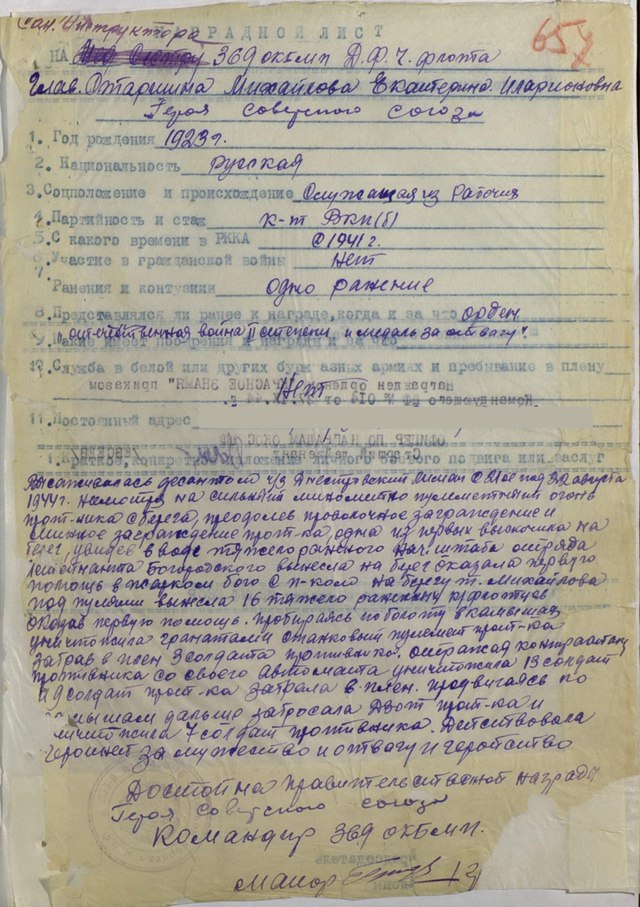 Сан. Инструктора
НАГРАДНОЙ ЛИСТ
65
НА Мед Сестру 369 ОКБМП Д.Ф.Ч. флота
Глав. Старшина Михайлова Екатерина Иларионовна
Героя советского союза
1. Год рождения 1923 г.
2. Национальность русская
3. Соцположение и происхождение Служащая из рабочих
4. Партийность и стаж к-т ВКП(б)
5. С какого времени в РККА С 1941 г.
6. Участие в гражданской войны Нет
7. Ранения и контузии одно ранение
8. Представлялся ли ранее к награде, когда и за что орден
„отечественная война II степени и медаль за отвагу“.
9. Какие имеет поощрения и награды и за что
10. Служба в белой или других буржуазных армиях и пребывание в плену
Нет
Награжден орденом „КРАСНОЕ ЗНАМЯ“ приказом
Командующего
11. Постоянный адрес
ОФИЦЕР ПО НАГРАДАМ
Старший лейтенант
1. Краткое, конкретное изложение личного боевого подвига или заслуг
Высаживалась десантом ч/з Днестровский лиман с 21 ое под 22 августа
1944 г. Несмотря на сильный миномётно пулеметный огонь
прот-ника с берега, преодолев проволочное заграждение и
заграждение прот-ка, одна из первых выскочила на
берег, увидев в воде тяжело раненого нач. штаба отряда
лейтенанта Богородского вынесла на берег оказала первую
помощь в жарком бою с п-ком на берегу т. Михайлова
под пулями вынесла 16 тяжело раненых кр/флотцев
оказав первую помощь. пробираясь по болоту в камышах
уничтожила гранатами станковый пулемет прот-ка
забрав в плен 3 солдата противника. отражая контратаку
противника со своего автомата уничтожила 13 солдат
и 9 солдат прот-ка забрала в плен. продвигаясь по
камышам дальше забросала дзот прот-ка и
уничтожила 7 солдат противника. Действовала
героиней за мужество и отвагу и геройство
Достойна правительственной награды
Героя советского союза
Командир 369 ОКБМП.
председатель
майор